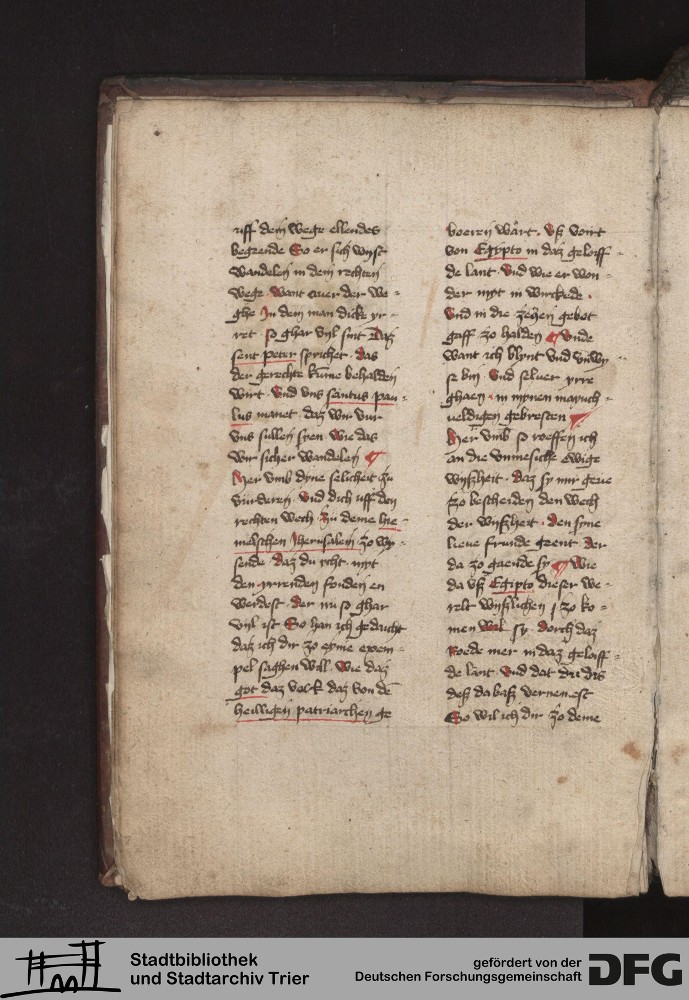 uff dem wege ellendes
begerende So er sich wyst
wandelen in dem rechten
wege want auer der we-
ghe Jn dem man dicke yr-
ret so ghar vyl sint Daz
sent peter sprichet das
der gerechte kume behalden
wirt Vnd vns sanctus pau-
lus manet daz wir vur
vns sullen syen wie das
wir sicher wandelen ¶
Her vmb dyne selicheit zu
vurderen Vnd dich uff den
rechten wech zu deme hie-
melschen Jherusalem zo wy-
sende daz du icht myt
den yrrenden fonden en
werdest der nu so ghar
vyl ist So han ich gedaicht
daz ich dir zo eyme exem-
pel saghen will Wie daz
got daz volk daz von dē
heilligen patriarchen ge
boeren wart vß voirt
von Egypto in daz geloiff-
de lant Vnd wie er won-
der myt in wirckede
Vnd in die zehen gebot
gaff zo halden ¶ Vnde
want ich blynt vnd vnwy-
se bin Vnd seluer yrre
ghaen in mynen manich-
ueldigen gebresten ¶
Her vmb so roeffen ich
an die vnmesliche ewige
wyßheit daz sy mir geue
zo bescheiden den wech
der wyßheit den syne
lieue frunde geent der
da zo gaende sy ¶ Wie
da vß Egipto dieser we-
relt wyßlichen zo ko-
men sy dorch daz
roede mer in daz geloiff-
de lant Vnd dat du dis
deß da baß vernemest
So wil ich dir zo deme
Stadtbibliothek
und Stadtarchiv Trier
gefördert von der
Deutschen Forschungsgemeinschaft
DFG